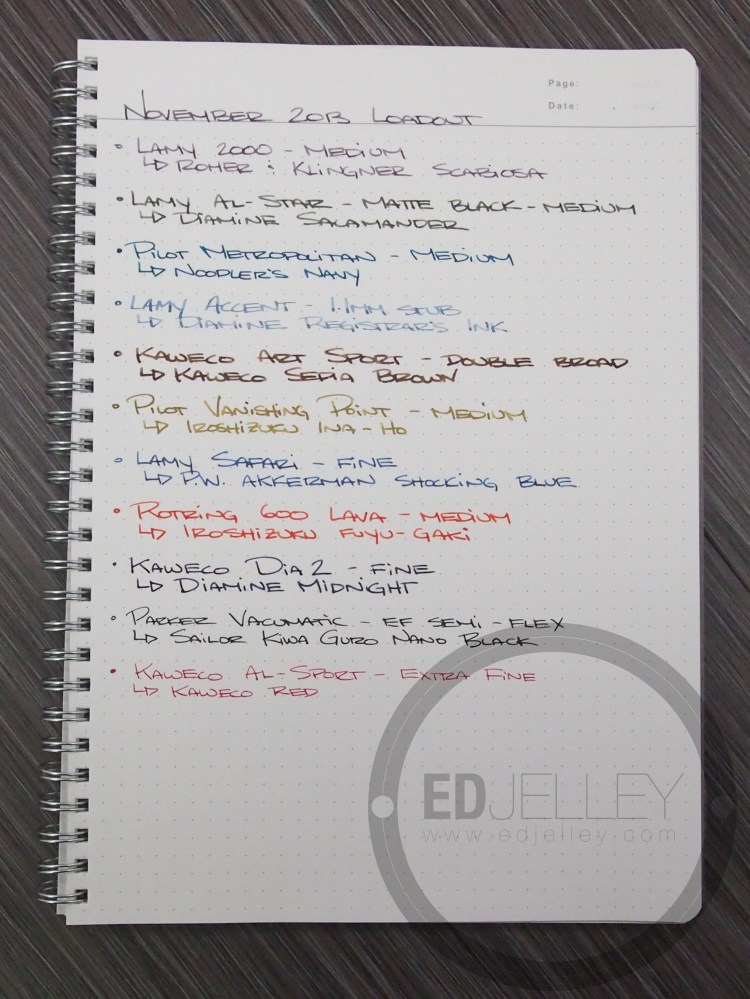 Page:
Date:
November 2013 Loadout
• Lamy 2000 - Medium
↳ Roher & Klingner Scabiosa
• Lamy Al-Star - Matte Black - Medium
↳ Diamine Salamander
• Pilot Metropolitan - Medium
↳ Noodler's Navy
• Lamy Accent - 1.1mm Stub
↳ Diamine Registrar's Ink
• Kaweco Art Sport - Double Broad
↳ Kaweco Sepia Brown
• Pilot Vanishing Point - Medium
↳ Iroshizuku Ina-Ho
• Lamy Safari - Fine
↳ P.W. Akkerman Shocking Blue
• Rotring 600 Lava - Medium
↳ Iroshizuku Fuyu-Gaki
• Kaweco Dia 2 - Fine
↳ Diamine Midnight
• Parker Vacumatic - EF Semi-Flex
↳ Sailor Kiwa Guro Nano Black
• Kaweco Al-Sport - Extra Fine
↳ Kaweco Red
EDJELLEY
www.edjelley.com